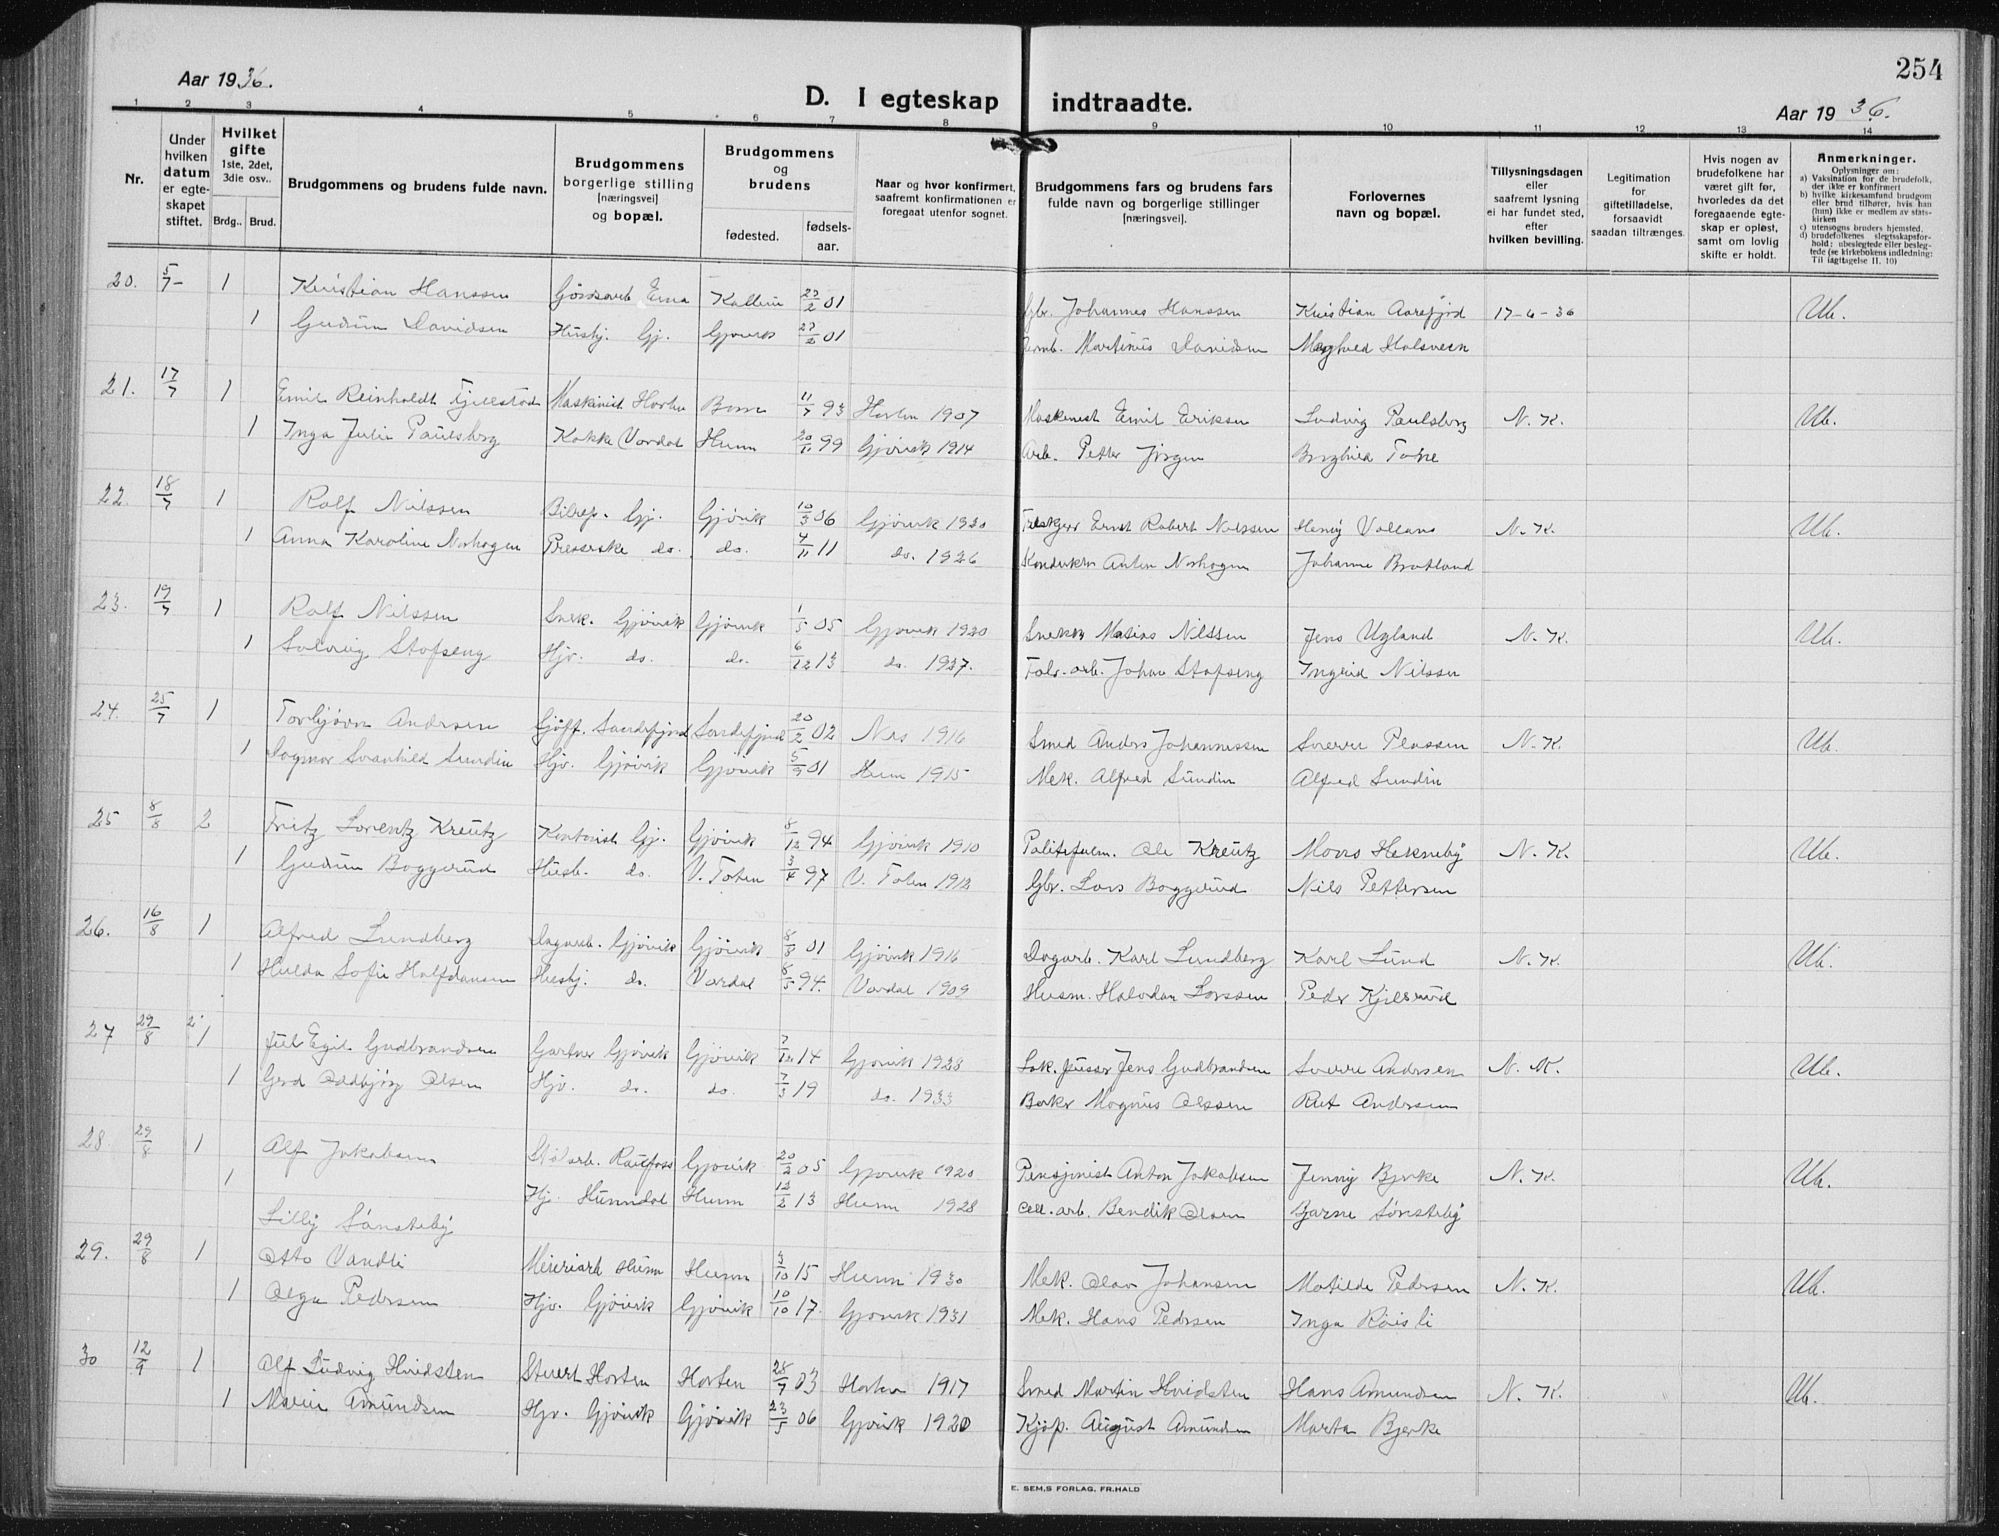 254
Aar 1936.
D. I egteskap indtraadte.
Aar 1936.
1 2 3 4 5 6 7 8 9 10 11 12 13 14
Nr.
Under hvilken datum er egte-skapet stiftet.
Hvilket gifte 1ste, 2det, 3die osv..
Brdg.. Brud.
Brudgommens og brudens fulde navn.
Brudgommens borgerlige stilling [næringsvei] og bopæl.
Brudgommens og brudens
fødested.
fødsels-aar.
Naar og hvor konfirmert, saafremt konfirmationen er foregaat utenfor sognet.
Brudgommens fars og brudens fars fulde navn og borgerlige stillinger [næringsvei].
Forlovernes navn og bopæl.
Tillysningsdagen eller saafremt lysning ei har fundet sted, efter hvilken bevilling.
Legitimation for giftetilladelse, forsaavidt saadan tiltrænges.
Hvis nogen av brudefolkene har været gift før, hvorledes da det foregaaende egte-skap er opløst, samt om lovlig skifte er holdt.
Anmerkninger.
Oplysninger om:
a) Vaksination for de brudefolk, der ikke er konfirmert
b) hvilke kirkesamfund brudgom eller brud tilhører, hvis han (hun) ikke er medlem av stats-kirken
c) utensogns bruders hjemsted.
d) brudefolkenes slegtsskapsfor-hold: ubeslegtede eller besleg-tede (se kirkebokens indledning: Til iagttagelse II, 10)
20. 5/7- 1 Kristian Hanssen 01 Johannes Hanssen Kristian 17-6-36 Ub.
1 Gudrun Davidsen Husbj. Gj. Gjøvik 01 Martinus Davidsen
21. 17/7 1 Emil Reinholdt Maskinist Horten 11/7 93 Horten 1907 Maskinist Emil Eriksen Ludvig Paulsberg N. K. Ub.
1 Inga Julie Paulsberg Kokke Vardal Hunn 20/11 99 Gjøvik 1914 Arb. Petter
22. 18/7 1 Rolf Nilssen Bilrep. Gj. Gjøvik 10/3 06 Gjøvik 1920 Ernst Robert Nilssen Henry N. K. Ub.
1 Anna Karoline do. do. 4/11 11 do. 1926 Anton Johanne
23. 19/7 1 Rolf Nilssen Snek. Gjøvik Gjøvik 1/5 05 Gjøvik 1920 Snekker Matias Nilssen Jens Ugland N. K. Ub.
1 Solveig Stofseng Hjv. do. do. 6/12 13 do. 1927. Johan Stofseng Ingrid Nilssen
24. 25/7 1 Torbjørn Andersen Sandefjord Sandefjord 20/2 02 Nes 1916 Smed Anders Johannessen Sverre N. K. Ub.
1 Dagmar Svanhild Sundin Hjv. Gjøvik Gjøvik 5/9 01 Hunn 1915 Mek. Alfred Sundin Alfred Sundin
25 8/8 2 Fritz Lorentz Kreutz Kontorist Gj. Gjøvik 8/12 94 Gjøvik 1910 Ole Kreutz N. K. Ub.
1 Gudrun Boggerud Husb. do. V. Toten 3/4 97 V. Toten 1912 Gbr. Lars Boggerud Nils Pettersen
26. 16/8 1 Alfred Lundberg Dagarb. Gjøvik Gjøvik 8/8 01 Gjøvik 1916 Dagarb. Karl Lundberg Karl Lund N. K. Ub.
1 Hulda Sofie Halfdansen Husbj. do. Vardal 8/5 94. Vardal 1909 Husm. Halvdan Larssen Peder
27 29/8 1 Juel Egil Gudbrandsen Gartner Gjøvik Gjøvik 7/12 14 Gjøvik 1928 Jens Gudbrandsen Sverre Andersen Ub.
1 Gerd Oddbjørg Olsen Hjv. do. do 7/3 19 do. 1933 Magnus Olssen Rut Andersen
28. 29/8 1 Alf Jakobsen Raufoss Gjøvik 20/2 05 Gjøvik 1920 Pensjonist Anton Jakobsen Jenny Bjerke N. K. Ub.
1 Lilly Sønsteby Hj. Hunndal Hunn 12/2 13 Hunn 1928 Cell-arb. Bendik Olsen Bjarne Sønsteby
29. 29/8 1 Otto Vandli Meieriarb Hunn Hunn 3/10 15 Hunn 1930 Mek. Olav Johansen Matilde Pedersen N. K. Ub.
1 Olga Pedersen Hjv. Gjøvik Gjøvik 10/10 17. Gjøvik 1931 Mek. Hans Pedersen Inga Røisli
30 12/9 1 Alf Ludvig Hvidsten Stuert Horten Horten 28/7 03 Horten 1917 Smed Martin Hvidsten Hans Amundsen N. K. Ub.
1 Marie Amundsen Hjv. Gjøvik Gjøvik 23/5 06 Gjøvik 1920 Kjøp. August Amundsen Marta Bjerke
E. SEM,S FORLAG, FR.HALD